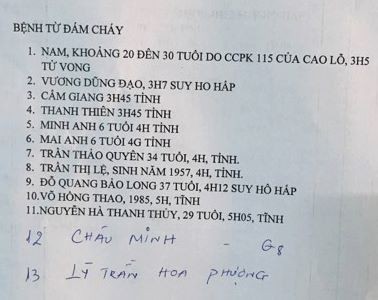 BỆNH TỪ ĐÁM CHÁY
1. NAM, KHOẢNG 20 ĐẾN 30 TUỔI DO CCPK 115 CỦA CAO LỖ, 3H5
TỬ VONG
2. VƯƠNG DŨNG ĐẠO, 3H7 SUY HO HẤP
3. CẨM GIANG 3H45 TỈNH
4. THANH THIÊN 3H45 TỈNH
5. MINH ANH 6 TUỔI 4H TỈNH
6. MAI ANH 6 TUỔI 4G TỈNH
7. TRẦN THẢO QUYÊN 34 TUỔI, 4H, TỈNH.
8. TRẦN THỊ LỆ, SINH NĂM 1957, 4H, TỈNH.
9. ĐỖ QUANG BẢO LONG 37 TUỔI, 4H12 SUY HÔ HẤP
10.VÕ HỒNG THAO, 1985, 5H, TỈNH
11.NGUYÊN HÀ THANH THỦY, 29 TUỔI, 5H05, TỈNH
12 CHÂU MINH - G8
13 LÝ TRẦN HOA PHƯỢNG